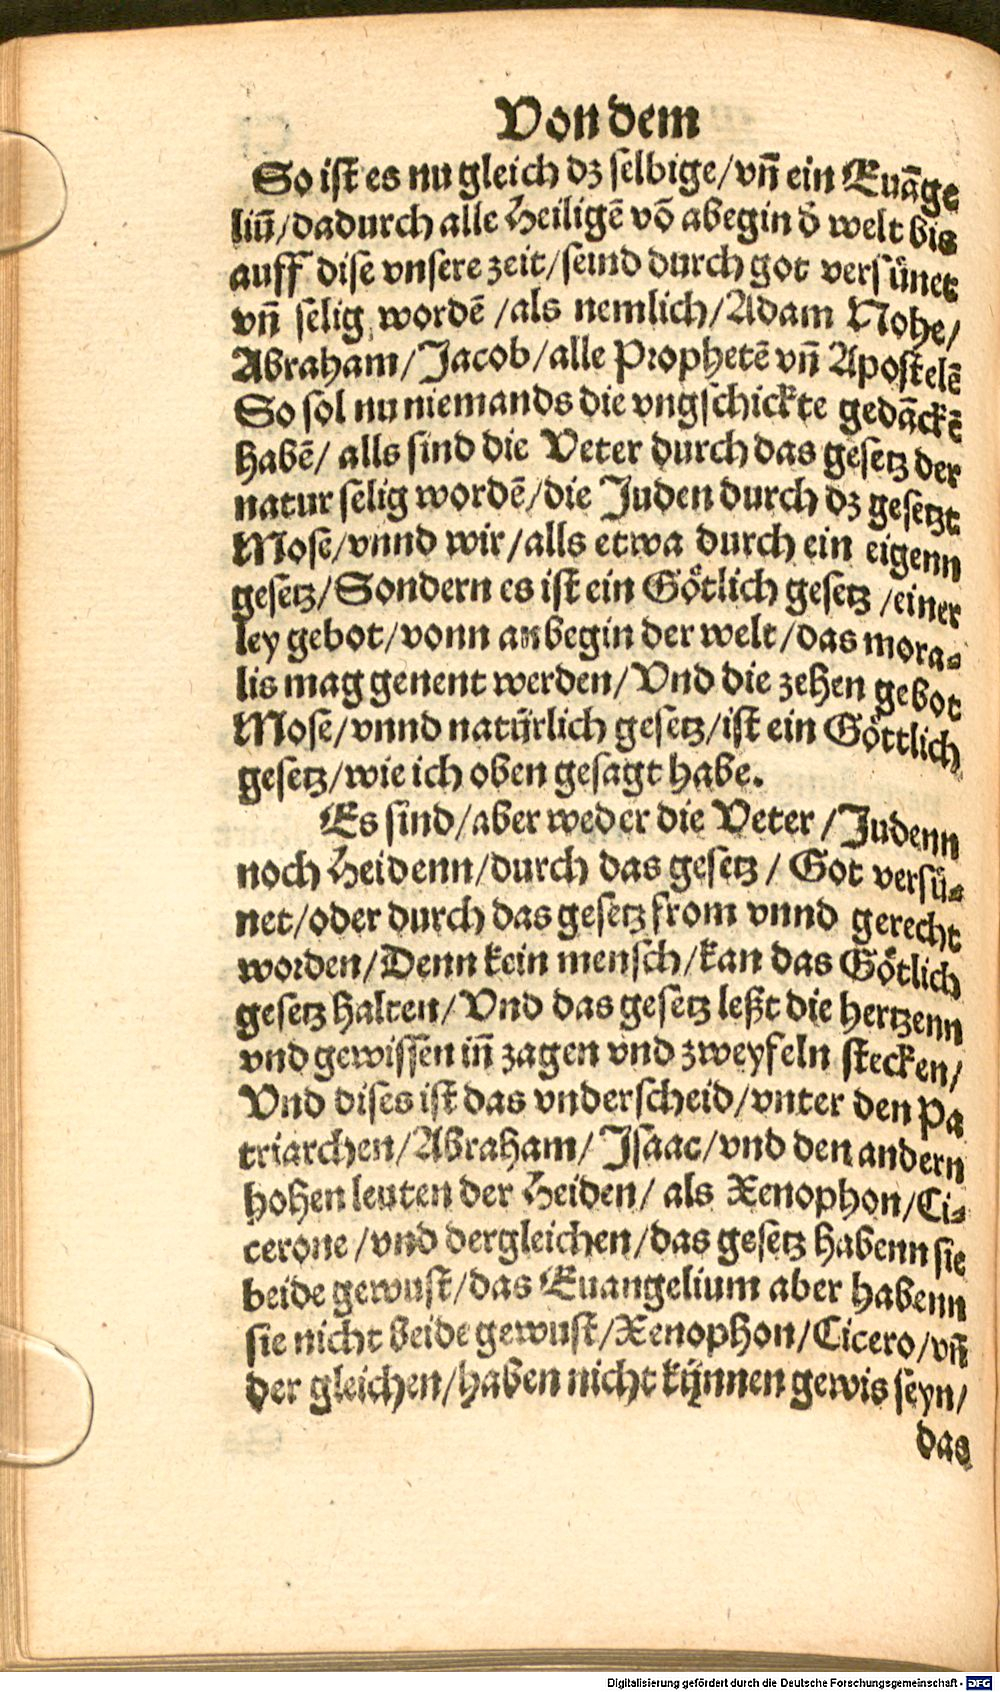 Von dem
So ist es nu gleich dz selbige/vñ ein Euãge
liũ/dadurch alle Heiligẽ võ abegin d̕ welt bis
auff dise vnsere zeit/seind durch got versůnet
vñ selig wordẽ/als nemlich/Adam Nohe/
Abraham/Jacob/alle Prophetẽ vñ Apostelẽ
So sol nu niemands die vngschickte gedãckẽ
habẽ/ alls sind die Veter durch das gesetz der
natur selig wordẽ/die Juden durch dz gesetzt
Mose/vnnd wir/alls etwa durch ein eigenn
gesetz/Sondern es ist ein Goͤtlich gesetz/einer
ley gebot/vonn anbegin der welt/das mora-
lis mag genent werden/Vnd die zehen gebot
Mose/vnnd natuͤrlich gesetz/ist ein Goͤttlich
gesetz/wie ich oben gesagt habe.
Es sind/aber weder die Veter/Judenn
noch Heidenn/durch das gesetz/ Got versů-
net/oder durch das gesetz from vnnd gerecht
worden/Denn kein mensch/kan das Goͤtlich
gesetz halten/Vnd das gesetz leßt die hertzenn
vnd gewissen iñ zagen vnd zweyfeln stecken/
Vnd dises ist das vnderscheid/vnter den Pa
triarchen/Abraham/ Isaac/vnd den andern
hohen leuten der Heiden/ als Xenophon/Ci-
cerone/vnd dergleichen/das gesetz habenn sie
beide gewust/das Euangelium aber habenn
sie nicht beide gewust/Xenophon/Cicero/vñ
der gleichen/haben nicht kuͤnnen gewis seyn/
das
Digitalisierung gefördert durch die Deutsche Forschungsgemeinschaft - DFG